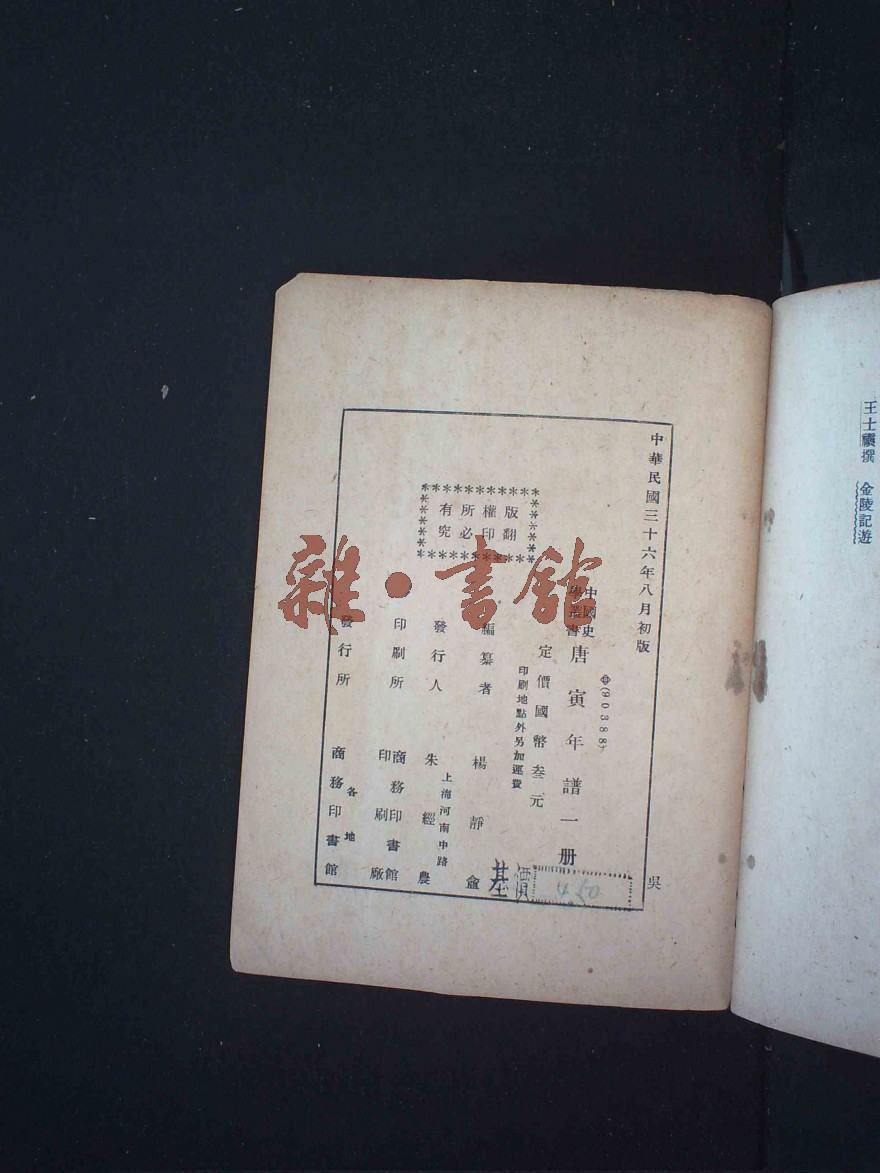 王士禛撰　金陵記遊
中華民國三十六年八月初版
⊕(90388)
中國史學叢書 唐寅年譜一册
定價國幣叁元
印刷地點外另加運費
版權所有
翻印必究
編纂者 楊靜盦
發行人 朱經農
上海河南中路
印刷所 商務印書館印刷廠
發行所 商務印書館
各地
吳
基價 4.50
雜·書館